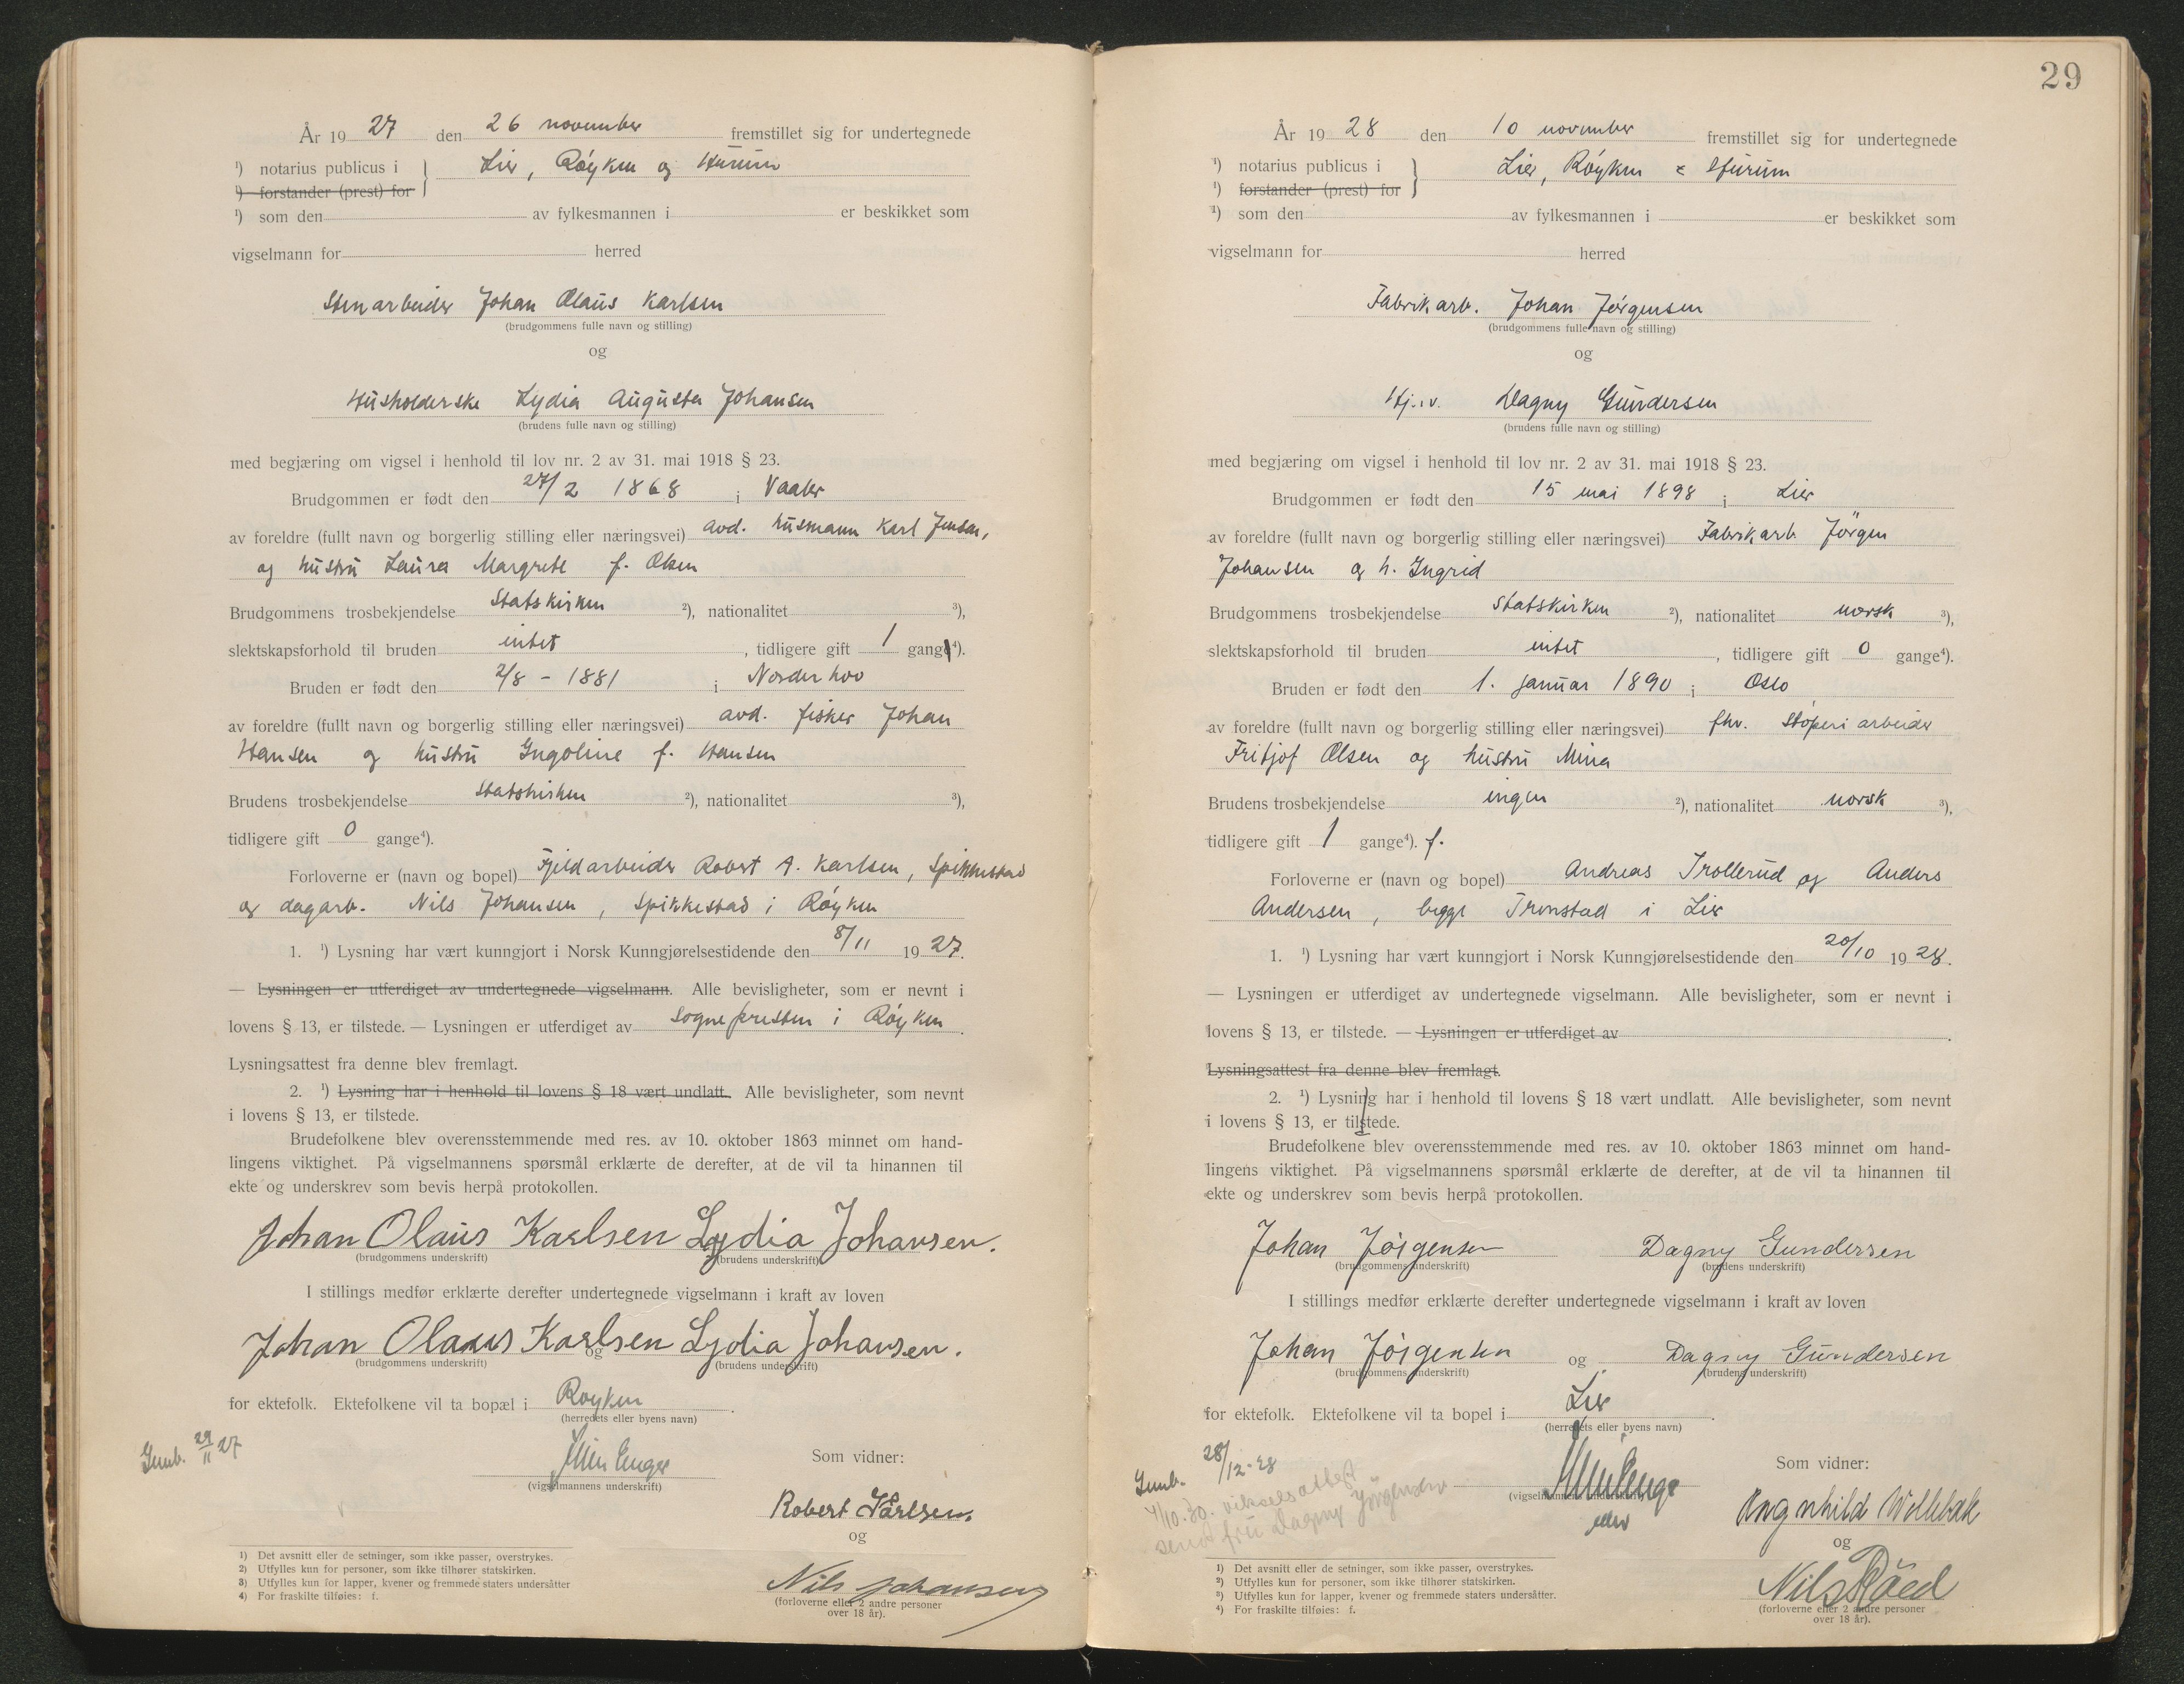 År 19 27 den 26 november fremstillet sig for undertegnede
¹) notarius publicus i } Lier, Røyken og Hurum
¹) forstander (prest) for
¹) som den av fylkesmannen i er beskikket som
vigselmann for herred
Stenarbeider Johan Olaus Karlsen
(brudgommens fulle navn og stilling)
og
Husholderske Lydia Augusta Johansen
(brudens fulle navn og stilling)
med begjæring om vigsel i henhold til lov nr. 2 av 31. mai 1918 § 23.
Brudgommen er født den 27/2 1868 i Vaaler
av foreldre (fullt navn og borgerlig stilling eller næringsvei) avd. husmann Karl Jensen,
og hustru Laura Margrete f. Olsen
Brudgommens trosbekjendelse Statskirken ²), nationalitet ³),
slektskapsforhold til bruden intet , tidligere gift 1 gang ⁴).
Bruden er født den 2/8 - 1881 i Norderhov
av foreldre (fullt navn og borgerlig stilling eller næringsvei) avd. fisker Johan
Hansen og hustru Ingoline f. Hansen
Brudens trosbekjendelse Statskirken ²), nationalitet ³),
tidligere gift 0 gange⁴).
Forloverne er (navn og bopel) Fjeldarbeider Robert A. Karlsen, Spikkestad
og dagarb. Nils Johansen, Spikkestad i Røyken
1. ¹) Lysning har vært kunngjort i Norsk Kunngjørelsestidende den 8/11 19 27.
— Lysningen er utferdiget av undertegnede vigselmann. Alle bevisligheter, som er nevnt i
lovens § 13, er tilstede. — Lysningen er utferdiget av sognepresten i Røyken.
Lysningsattest fra denne blev fremlagt.
2. ¹) Lysning har i henhold til lovens § 18 vært undlatt. Alle bevisligheter, som nevnt
i lovens § 13, er tilstede.
Brudefolkene blev overensstemmende med res. av 10. oktober 1863 minnet om hand-
lingens viktighet. På vigselmannens spørsmål erklærte de derefter, at de vil ta hinannen til
ekte og underskrev som bevis herpå protokollen.
Johan Olaus Karlsen Lydia Johansen.
(brudgommens underskrift) (brudens underskrift)
I stillings medfør erklærte derefter undertegnede vigselmann i kraft av loven
Johan Olaus Karlsen og Lydia Johansen.
(brudgommens underskrift) (brudens underskrift)
for ektefolk. Ektefolkene vil ta bopæl i Røyken.
(herredets eller byens navn)
29/11 27
Som vidner:
(vigselmannens underskrift)
Robert Karlsen.
og
Nils Johansen
(forloverne eller 2 andre personer
over 18 år).
1) Det avsnitt eller de setninger, som ikke passer, overstrykes.
2) Utfylles kun for personer, som ikke tilhører statskirken.
3) Utfylles kun for lapper, kvener og fremmede staters undersåtter
4) For fraskilte tilføies: f.
29
År 19 28 den 10 november fremstillet sig for undertegnede
¹) notarius publicus i } Lier, Røyken & Hurum
¹) forstander (prest) for
¹) som den av fylkesmannen i er beskikket som
vigselmann for herred
Fabrikarb. Johan Jørgensen
(brudgommens fulle navn og stilling)
og
Dagny Gundersen
(brudens fulle navn og stilling)
med begjæring om vigsel i henhold til lov nr. 2 av 31. mai 1918 § 23.
Brudgommen er født den 15 mai 1898 i Lier
av foreldre (fullt navn og borgerlig stilling eller næringsvei) Fabrikarb Jörgen
Johansen og h. Ingrid
Brudgommens trosbekjendelse statskirken ²), nationalitet norsk ³),
slektskapsforhold til bruden intet , tidligere gift 0 gange⁴).
Bruden er født den 1. januar 1890 i Oslo
av foreldre (fullt navn og borgerlig stilling eller næringsvei) fhv. Støperiarbeider
Fritjof Olsen og hustru Mina
Brudens trosbekjendelse ingen ²), nationalitet norsk ³),
tidligere gift 1 gange⁴). f.
Forloverne er (navn og bopel) Andreas Trollerud og Anders
Andersen, begge Tronstad i Lier
1. ¹) Lysning har vært kunngjort i Norsk Kunngjørelsestidende den 20/10 19 28.
— Lysningen er utferdiget av undertegnede vigselmann. Alle bevisligheter, som er nevnt i
lovens § 13, er tilstede. — Lysningen er utferdiget av .
Lysningsattest fra denne blev fremlagt.
2. ¹) Lysning har i henhold til lovens § 18 vært undlatt. Alle bevisligheter, som nevnt
i lovens § 13, er tilstede.
Brudefolkene blev overensstemmende med res. av 10. oktober 1863 minnet om hand-
lingens viktighet. På vigselmannens spørsmål erklærte de derefter, at de vil ta hinannen til
ekte og underskrev som bevis herpå protokollen.
Johan Jørgensen Dagny Gundersen
(brudgommens underskrift) (brudens underskrift)
I stillings medfør erklærte derefter undertegnede vigselmann i kraft av loven
Johan Jørgensen og Dagny Gundersen
(brudgommens underskrift) (brudens underskrift)
for ektefolk. Ektefolkene vil ta bopel i Lier.
(herredets eller byens navn)
28/12-28
vikselsattest
send fru Dagny Jørgensen
Som vidner:
(vigselmannens underskrift)
Ragnhild Wollebæk
og
Nils Röed
(forloverne eller 2 andre personer
over 18 år).
¹) Det avsnitt eller de setninger, som ikke passer, overstrykes.
²) Utfylles kun for personer, som ikke tilhører statskirken.
³) Utfylles kun for lapper, kvener og fremmede staters undersåtter.
⁴) For fraskilte tilføies: f.